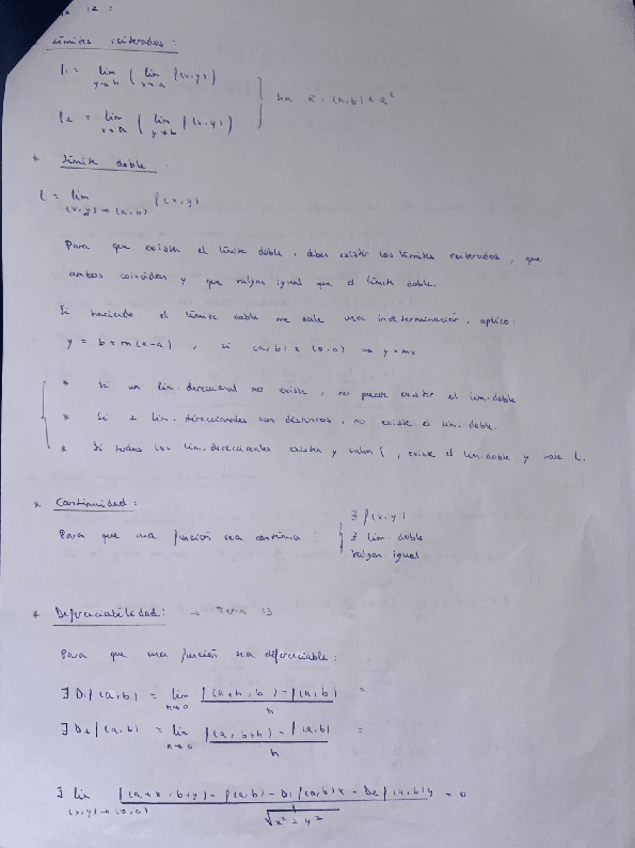 12:
Límites reiterados:
l₁ = lim y→b ( lim x→a f(x,y) )
l₂ = lim x→a ( lim y→b f(x,y) ) } Sea ā = (a,b) ∈ R²
* Límite doble
l = lim (x,y)→(a,b) f(x,y)
Para que exista el límite doble, deben existir los límites reiterados, que
ambos coincidan y que valgan igual que el límite doble.
Si haciendo el límite doble me sale una indeterminación, aplico:
y = b+m(x-a), si (a,b) = (0,0) → y=mx
* Si un lim. direccional no existe, no puede existir el lim. doble
* Si 2 lim. direccionales son distintos, no existe el lim. doble.
* Si todos los lim. direccionales existen y valen l, existe el lim. doble y vale l.
* Continuidad:
Para que una función sea continua: { ∃ f(x,y)
∃ lim. doble
valgan igual
* Diferenciabilidad: → Tema 13
Para que una función sea diferenciable:
∃ D₁f(a,b) = lim h→0 f(a+h,b) - f(a,b) / h =
∃ D₂f(a,b) = lim h→0 f(a,b+h) - f(a,b) / h =
∃ lim (x,y)→(0,0) f(a+x,b+y) - f(a,b) - D₁f(a,b)x - D₂f(a,b)y / √x²+y² = 0